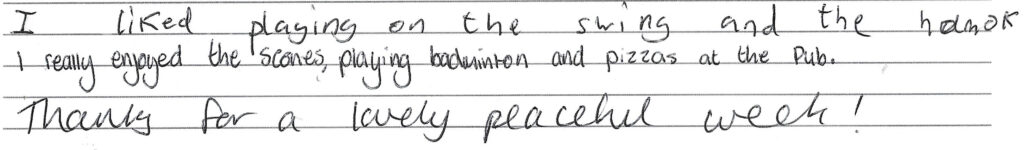 I liked playing on the swing and the hamok
I really enjoyed the scones, playing badminton and pizzas at the Pub.
Thanks for a lovely peaceful week!